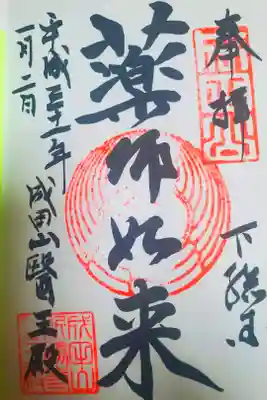 奉拝
下総国
薬師如来
平成三十一年
一月二日
成田山醫王殿